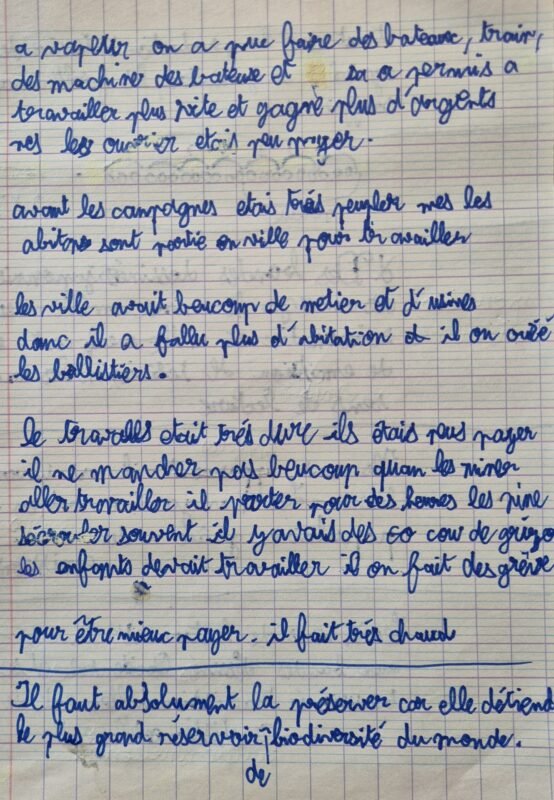 a vapeur on a pue faire des bateaux, train,
des machine des bateuse et sa a permis a
travailler plus vite et gagné plus d'argents
mes les ouvrier etais peu payer.
avant les campagnes etais très peupler mes les
abitan sont partie en ville pour travailler
les ville avait beucoup de metier et d'usines
donc il a fallu plus d'abitation et il on créé
les ballistiers.
le travalles etait très dure ils étais peus payer
il ne mancher pas beucoup quan les miner
aller travailler il parter pour des heures les mine
sécrouler souvent il y avais des co cou de grizo
les enfants devait travailler il on fait des grève
pour être mieuc payer. il fait très chaud
Il faut absolument la préserver car elle détiend
le plus grand réservoir de biodiversité du monde.